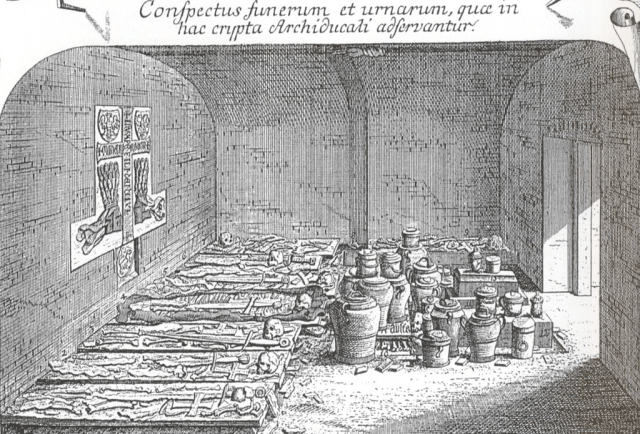 Conſpectus funerum et urnarum, quæ in
hac crypta Archiducali adſervantur.